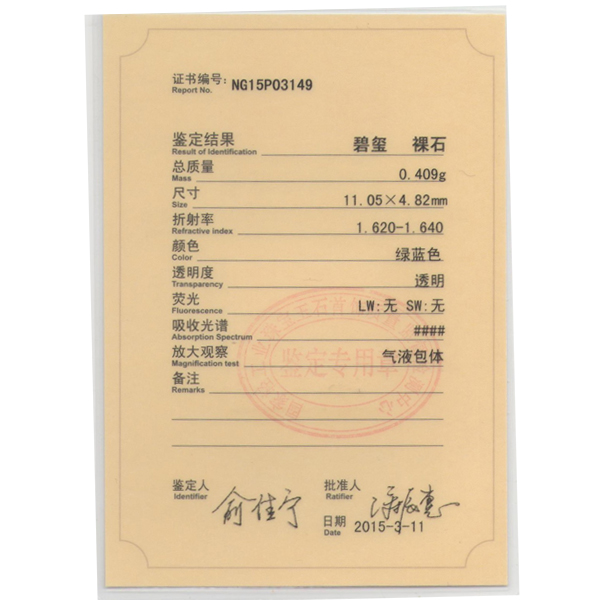 证书编号: NG15P03149
Report No.
鉴定结果 碧玺 裸石
Result of Identification
总质量 0.409g
Mass
尺寸 11.05×4.82mm
Size
折射率 1.620-1.640
Refractive index
颜色 绿蓝色
Color
透明度 透明
Transparency
荧光 LW:无 SW:无
Fluorescence
吸收光谱 ####
Absorption Spectrum
放大观察 气液包体
Magnification test
备注
Remarks
鉴定专用章
鉴定人 俞佳宁 批准人
Identifier Ratifier
日期 2015-3-11
Date